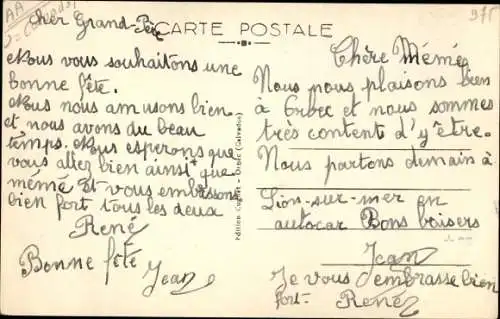 CARTE POSTALE
cher Grand-Père
Nous vous souhaitons une
bonne fête.
Nous nous amusons bien
et nous avons du beau
temps. Nous esperons que
vous allez bien ainsi que
mémé Et vous embrassons
bien fort tous les deux
René
Bonne fête Jean
Chère Mémé
Nous nous plaisons bien
à Orbec et nous sommes
très content d'y être.
Nous partons demain à
Lion-sur-mer en
autocar Bons baisers
Jean
Je vous embrasse bien
fort- René
Orbec (Calvados)